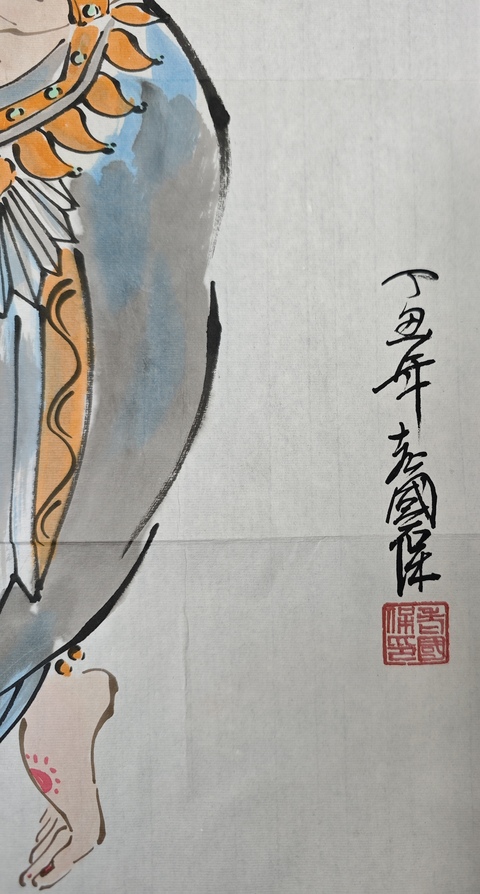 丁丑年
國保
國
保印